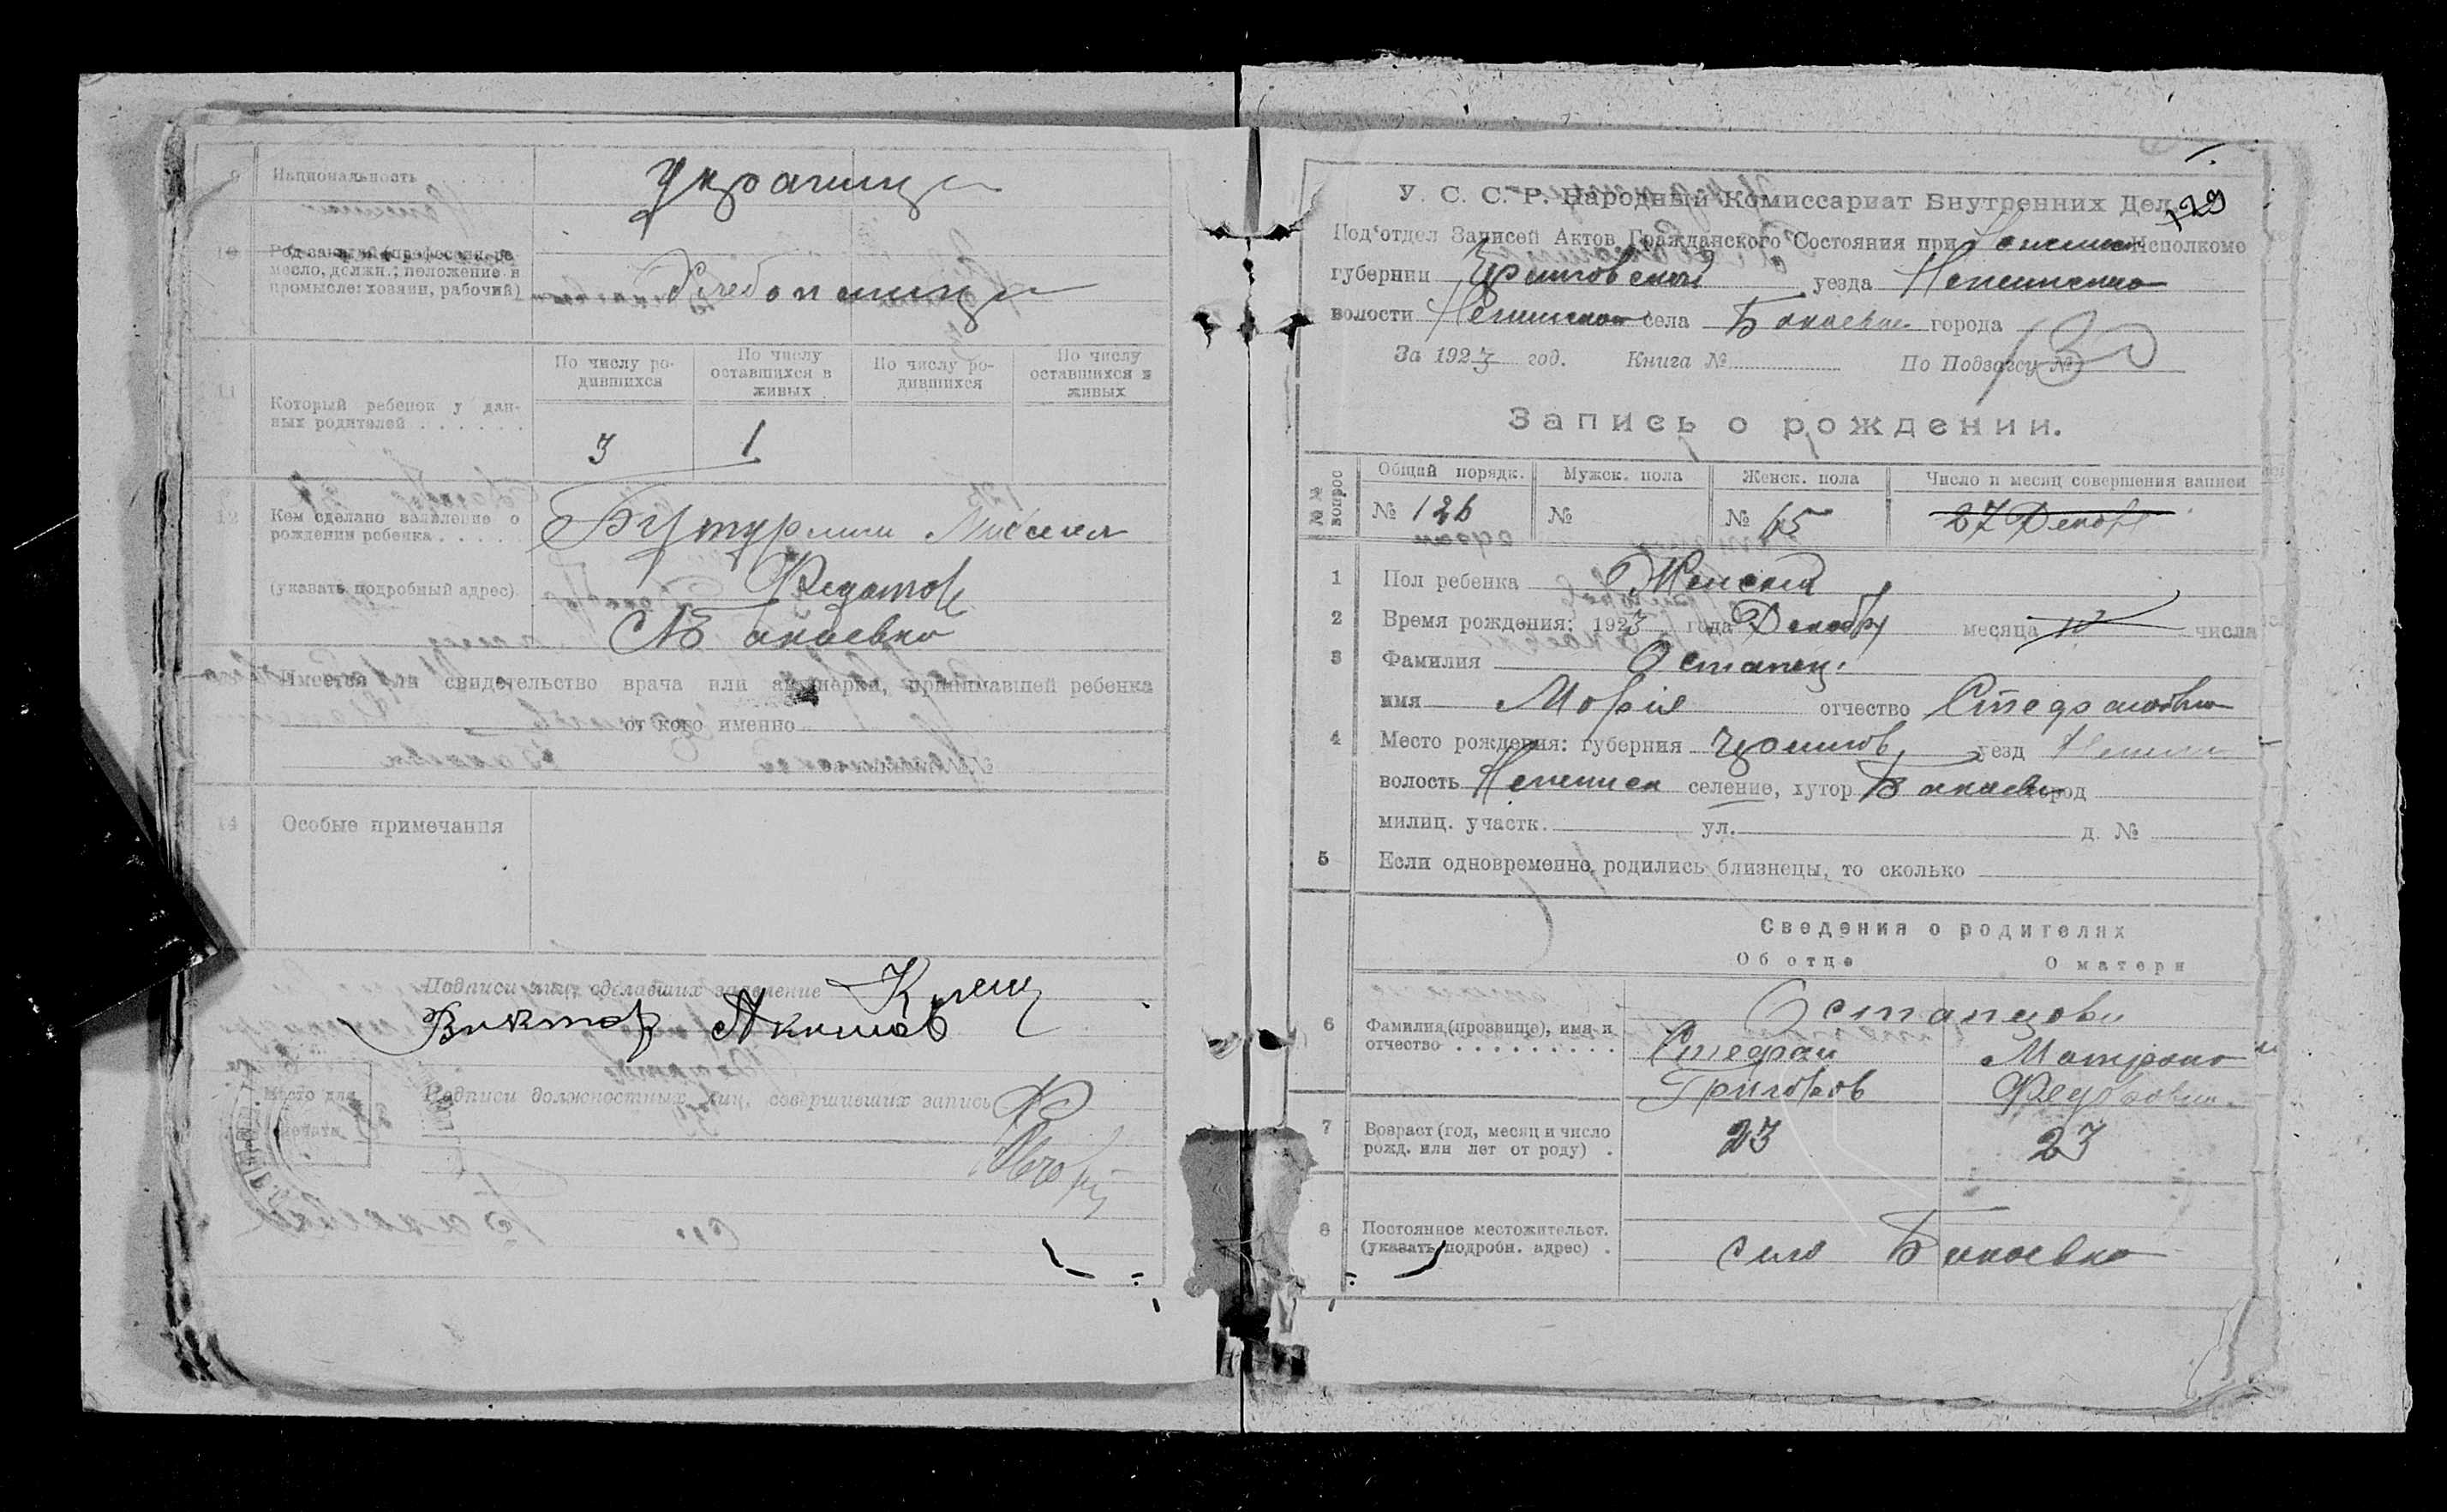 9 Национальность украинцы
10 Род занятий (профессия, ремесло, должн.; положение в промысле: хозяин, рабочий) Хлебопашцы
11 Который ребенок у данных родителей
По числу родившихся
По числу оставшихся в живых
По числу родившихся
По числу оставшихся в живых
3 1
12 Кем сделано заявление о рождении ребенка Бутурлим
(указать подробный адрес) Федотов
С Бакаевка
Имеется ли свидетельство врача или акушерки, принимавшей ребенка
от кого именно
14 Особые примечания
Подписи лиц, сделавших заявление
Виктор Акимов
Место для печати
Подписи должностных лиц, совершивших запись
129
У. С. С. Р. Народный Комиссариат Внутренних Дел.
Под'отдел Записей Актов Гражданского Состояния при Исполкоме
губернии Черниговской уезда
волости села Бакаевки города
За 1923 год. Книга № По Подзагсу № 130
Запись о рождении.
№№ вопрос
Общий порядк. Мужск. пола Женск. пола Число и месяц совершения записи
№ 126 № № 65 27 Декабр
1 Пол ребенка Женский
2 Время рождения: 1923 года Декабр месяца числа
3 Фамилия Остапец
имя Марія отчество Стефановна
4 Место рождения: губерния Чернигов, уезд Нежин
волость Нежинск селение, хутор Бакаевк город
милиц. участк. ул. д. №
5 Если одновременно родились близнецы, то сколько
Сведения о родителях
Об отце О матери
6 Фамилия (прозвище), имя и отчество Остапцовы
Стефан Матрона
Григоров Федоровна
7 Возраст (год, месяц и число рожд. или лет от роду) 23 23
8 Постоянное местожительст. (указать подробн. адрес) село Бакаевка